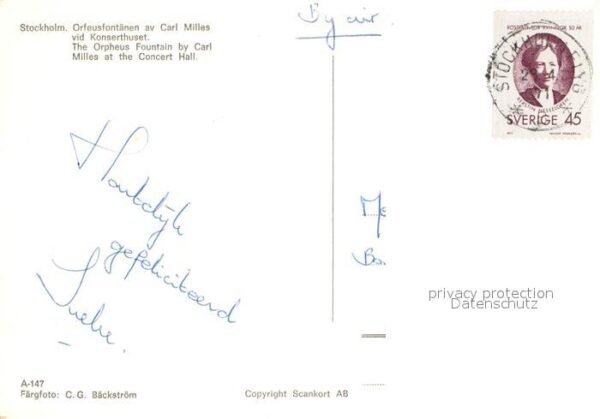 Stockholm. Orfeusfontänen av Carl Milles
vid Konserthuset.
The Orpheus Fountain by Carl
Milles at the Concert Hall.
By air
SVERIGE 45
STOCKHOLM
Hartelijk
gefeliciteerd
privacy protection
Datenschutz
A-147
Färgfoto: C. G. Bäckström
Copyright Scankort AB